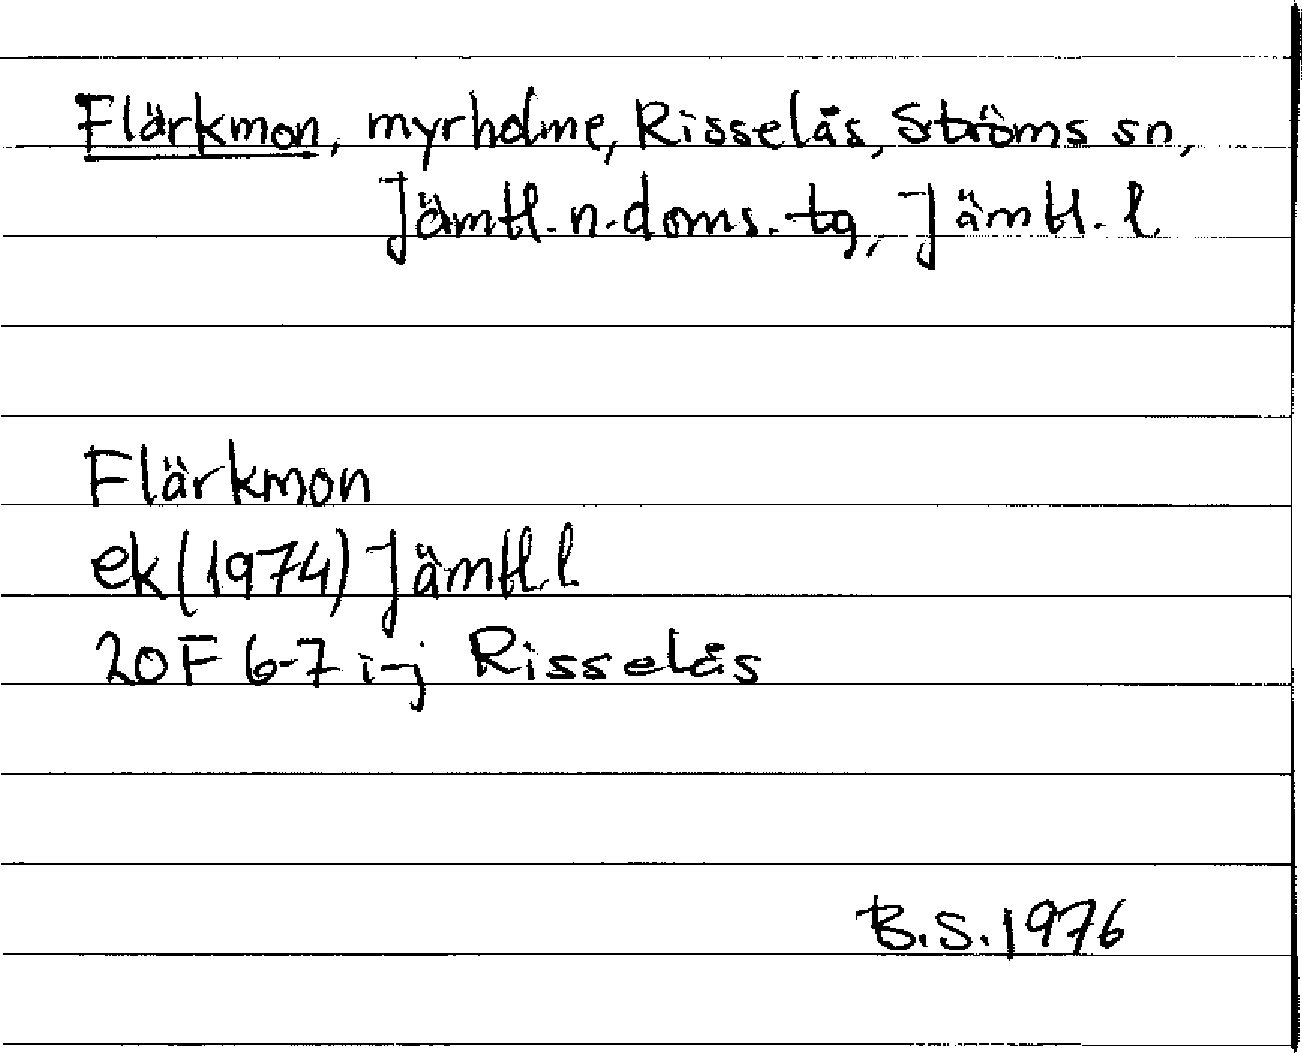 Flärkmon, myrholme, Risselås, Ströms sn,
Jämtl. n. doms. tg, Jämtl. l
Flärkmon
ek (1974) Jämtl. l
20 F 6-7 i-j Risselås
B.S. 1976